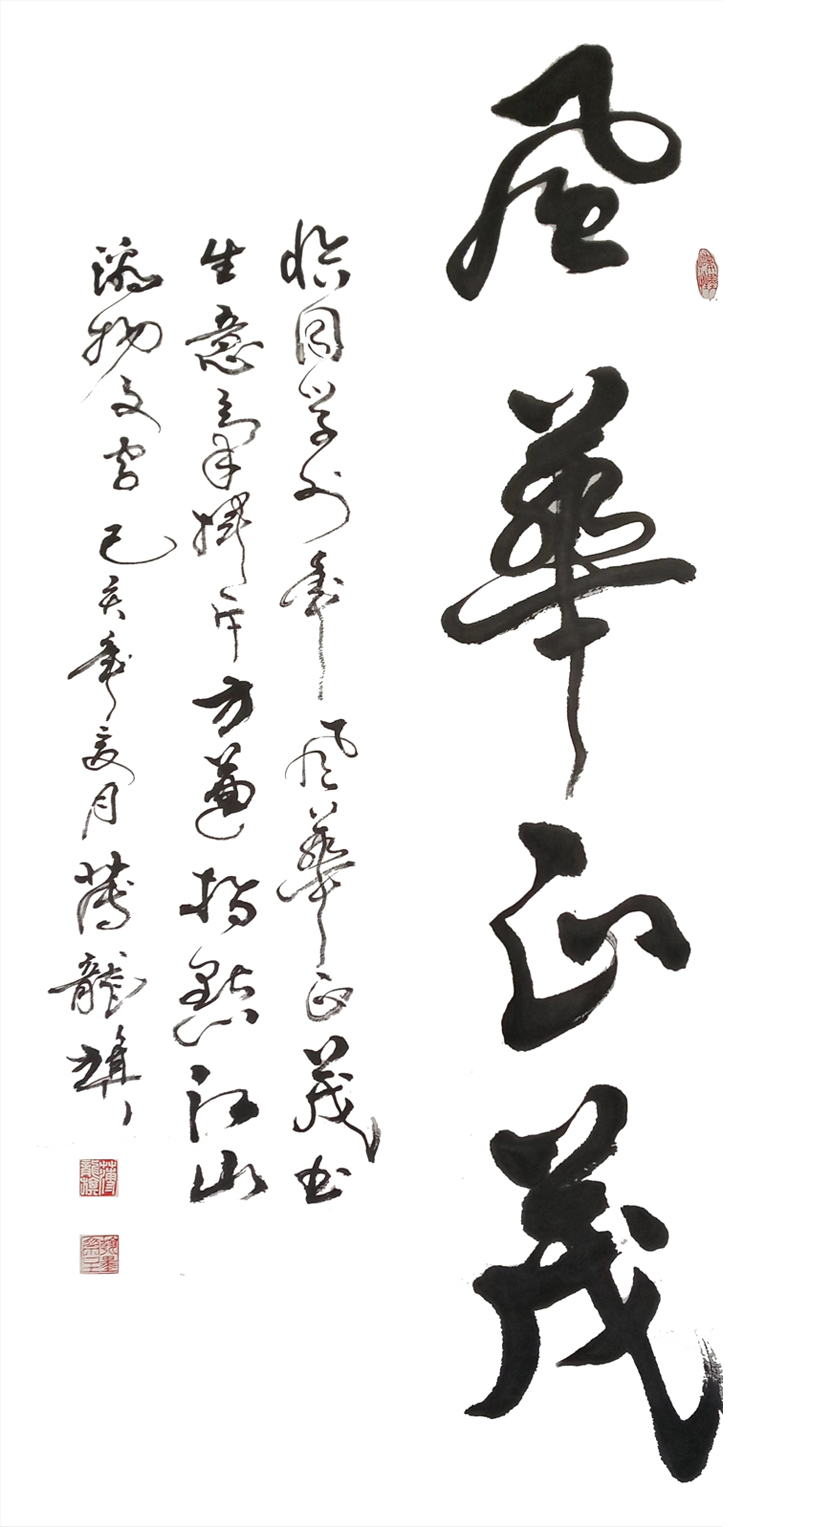 風華正茂
恰同学少年風華正茂书
生意氣揮斥方遒指點江山
激揚文字己亥年夏月薄龍旗
薄龍旗